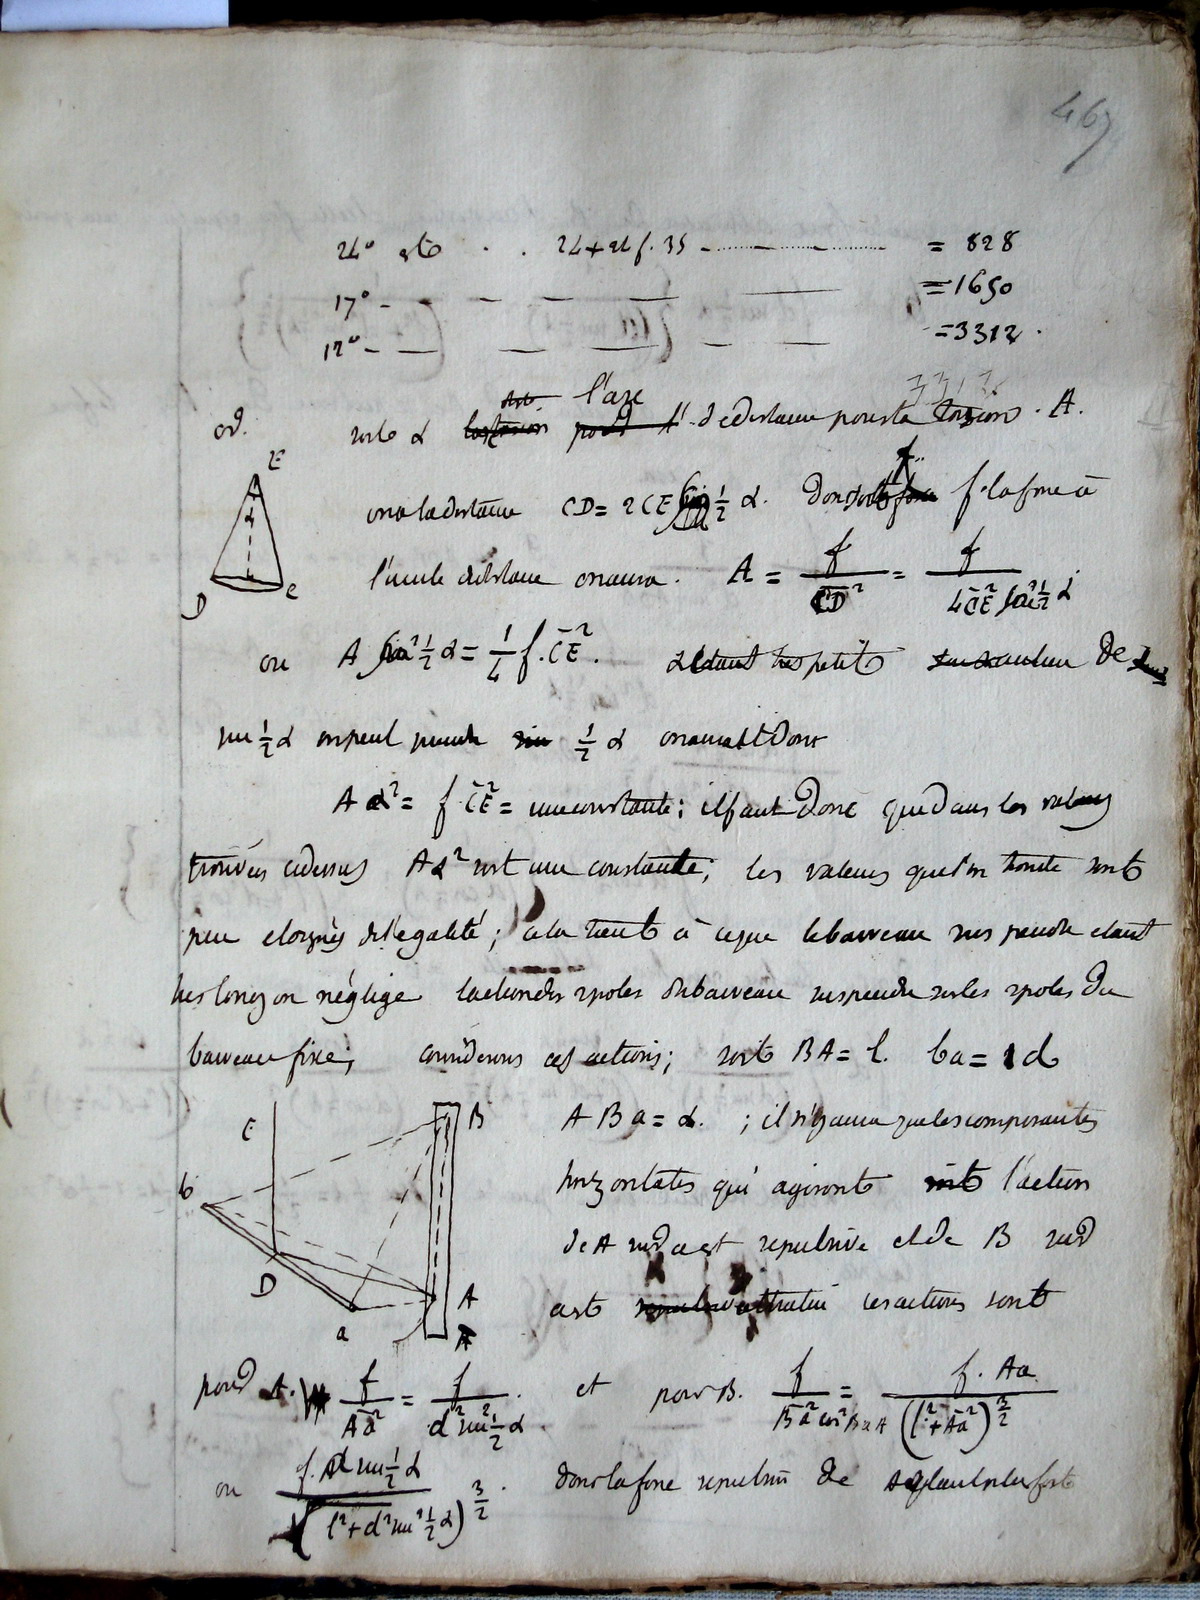 467
24° et . . 24+21 f. 35 - ... = 828
17° - - - - = 1650
12° - - - - = 3312.
3312
soit α l'arc de distance pour la torsion. A.
od.
E
α
D
C
on a la distance CD = 2CE sin ½ α. Donc f. la force à
l'unité distance on aura. A = f/CD² = f/4CE² sin² ½ α
ou A sin² ½ α = ¼ f. CE². α étant très petit au lieu de
sin ½ α on peut prendre ½ α on aurait donc
A α² = f CE² = une constante; il faut donc que dans les valeurs
trouvées cidessus Aα² soit une constante; les valeurs que l'on trouve sont
peu eloignés de l'egalité; cela tient à ce que le barreau suspendu etant
tres long on néglige l'action des 2 poles du barreau suspendu sur les 2 poles du
barreau fixe; considerons ces actions; soit BA = l. ba = d
C
b
D
a
B
A
A
ABa = α. ; il n'y aura que les composantes
horizontales qui agiront l'action
de A sur a est repulsive et de B sur
a est attractive ces actions sont
pour A. f/Aa² = f/d² sin² ½ α. et pour B. f/Ba² cos² BaA = f. Aa/(l²+Aa²)^3/2
ou f. d sin ½ α/(l²+d² sin² ½ α)^3/2. donc la force repulsive de etant plus forte